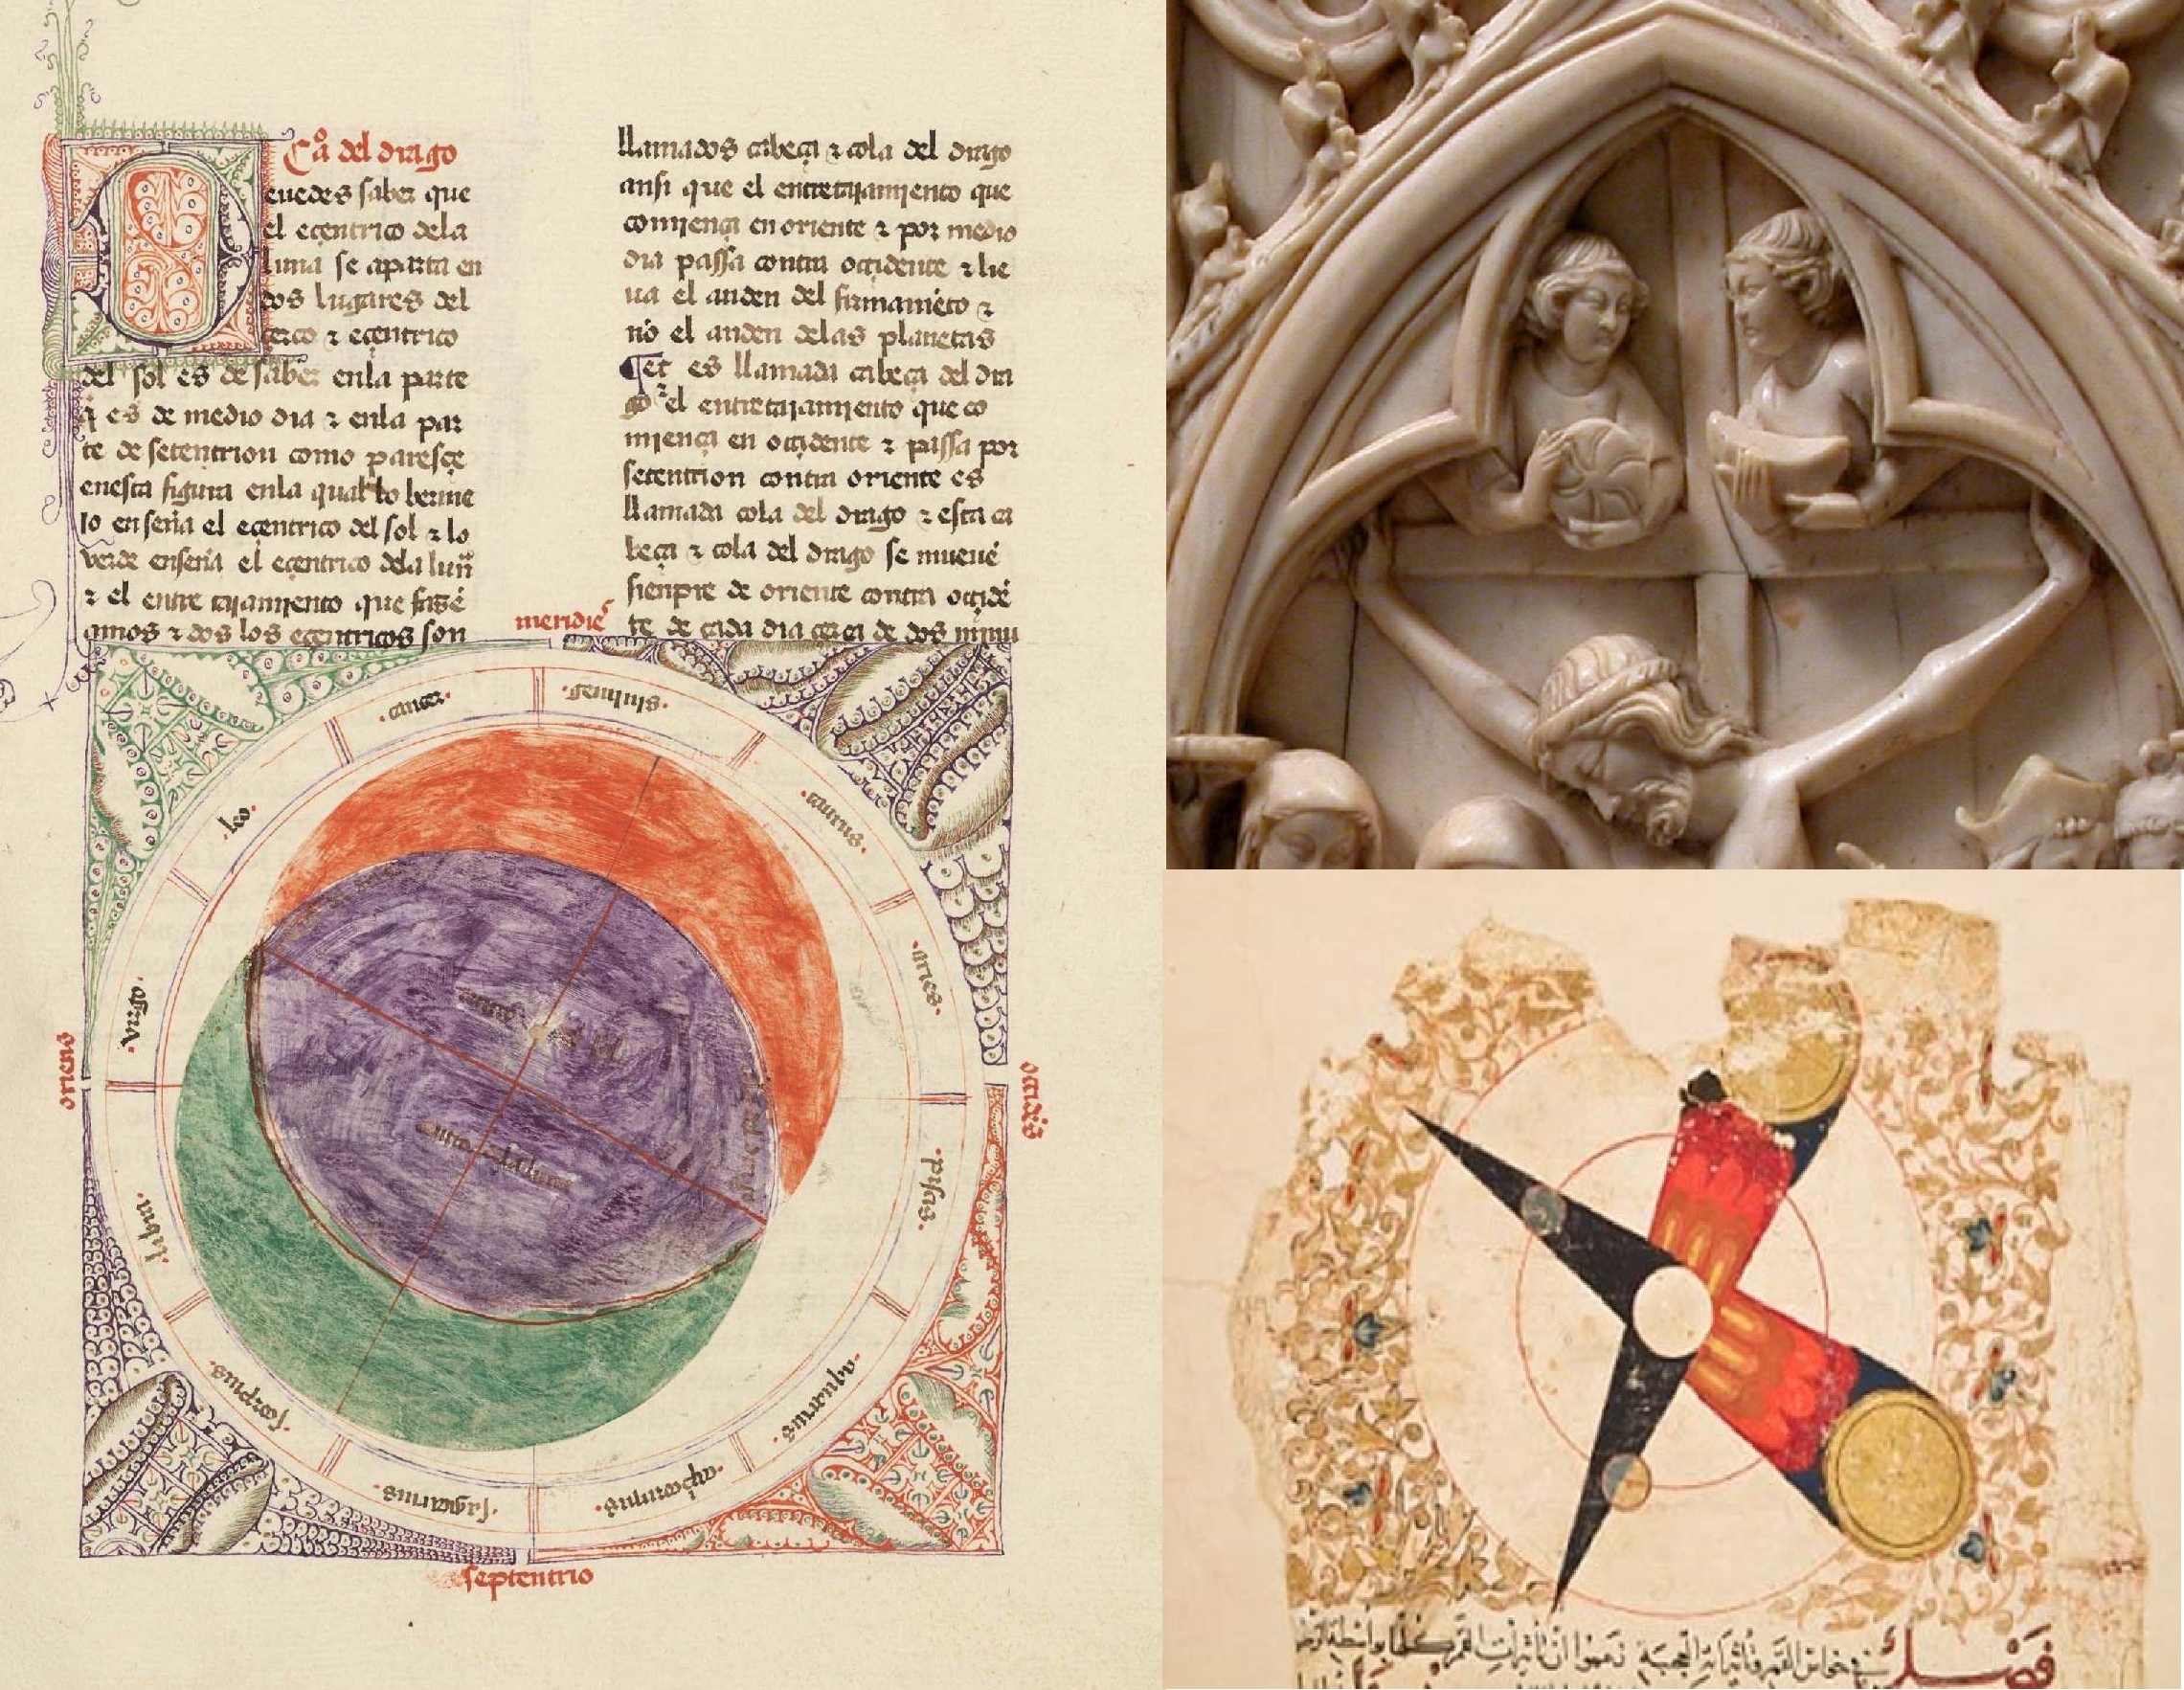 Ca del drago
euedes saber que
el eçentrico dela
luna se aparta en
dos lugares del
çerco ⁊ eçentrico
del sol es de saber enla parte
q̃ es de medio dia ⁊ enla par
te de setentrion como paresçe
enesta figura enla qual lo berme
lo enseña el eçentrico del sol ⁊ lo
verde enseña el eçentrico dela lun
⁊ el entre tajamjento que fazẽ
amos ⁊ dos los eçentricos son
llamados cabeça ⁊ cola del drago
ansi que el entretajamjento que
comjença en oriente ⁊ por medio
dia passa contra oçidente ⁊ lie
ua el anden del firmamẽto ⁊
nõ el anden delas planetas
et es llamada cabeça del dra
go ⁊ el entretajamjento que co
mjença en oçidente ⁊ passa por
setentrion contra oriente es
llamada cola del drago ⁊ esta ca
beça ⁊ cola del drago se mueuẽ
sienpre de oriente contra oçidẽ
te de cada dia çerca de dos mjnu
meridie
cancer
geminis
leo
taurus
virgo
aries
oriens
libra
piscis
scorpius
aquarius
sagitarius
septentrio
فصل في خواص القمر وتأثيراته العجيبة زعموا أن تأثيرات القمر كلها بواسطة